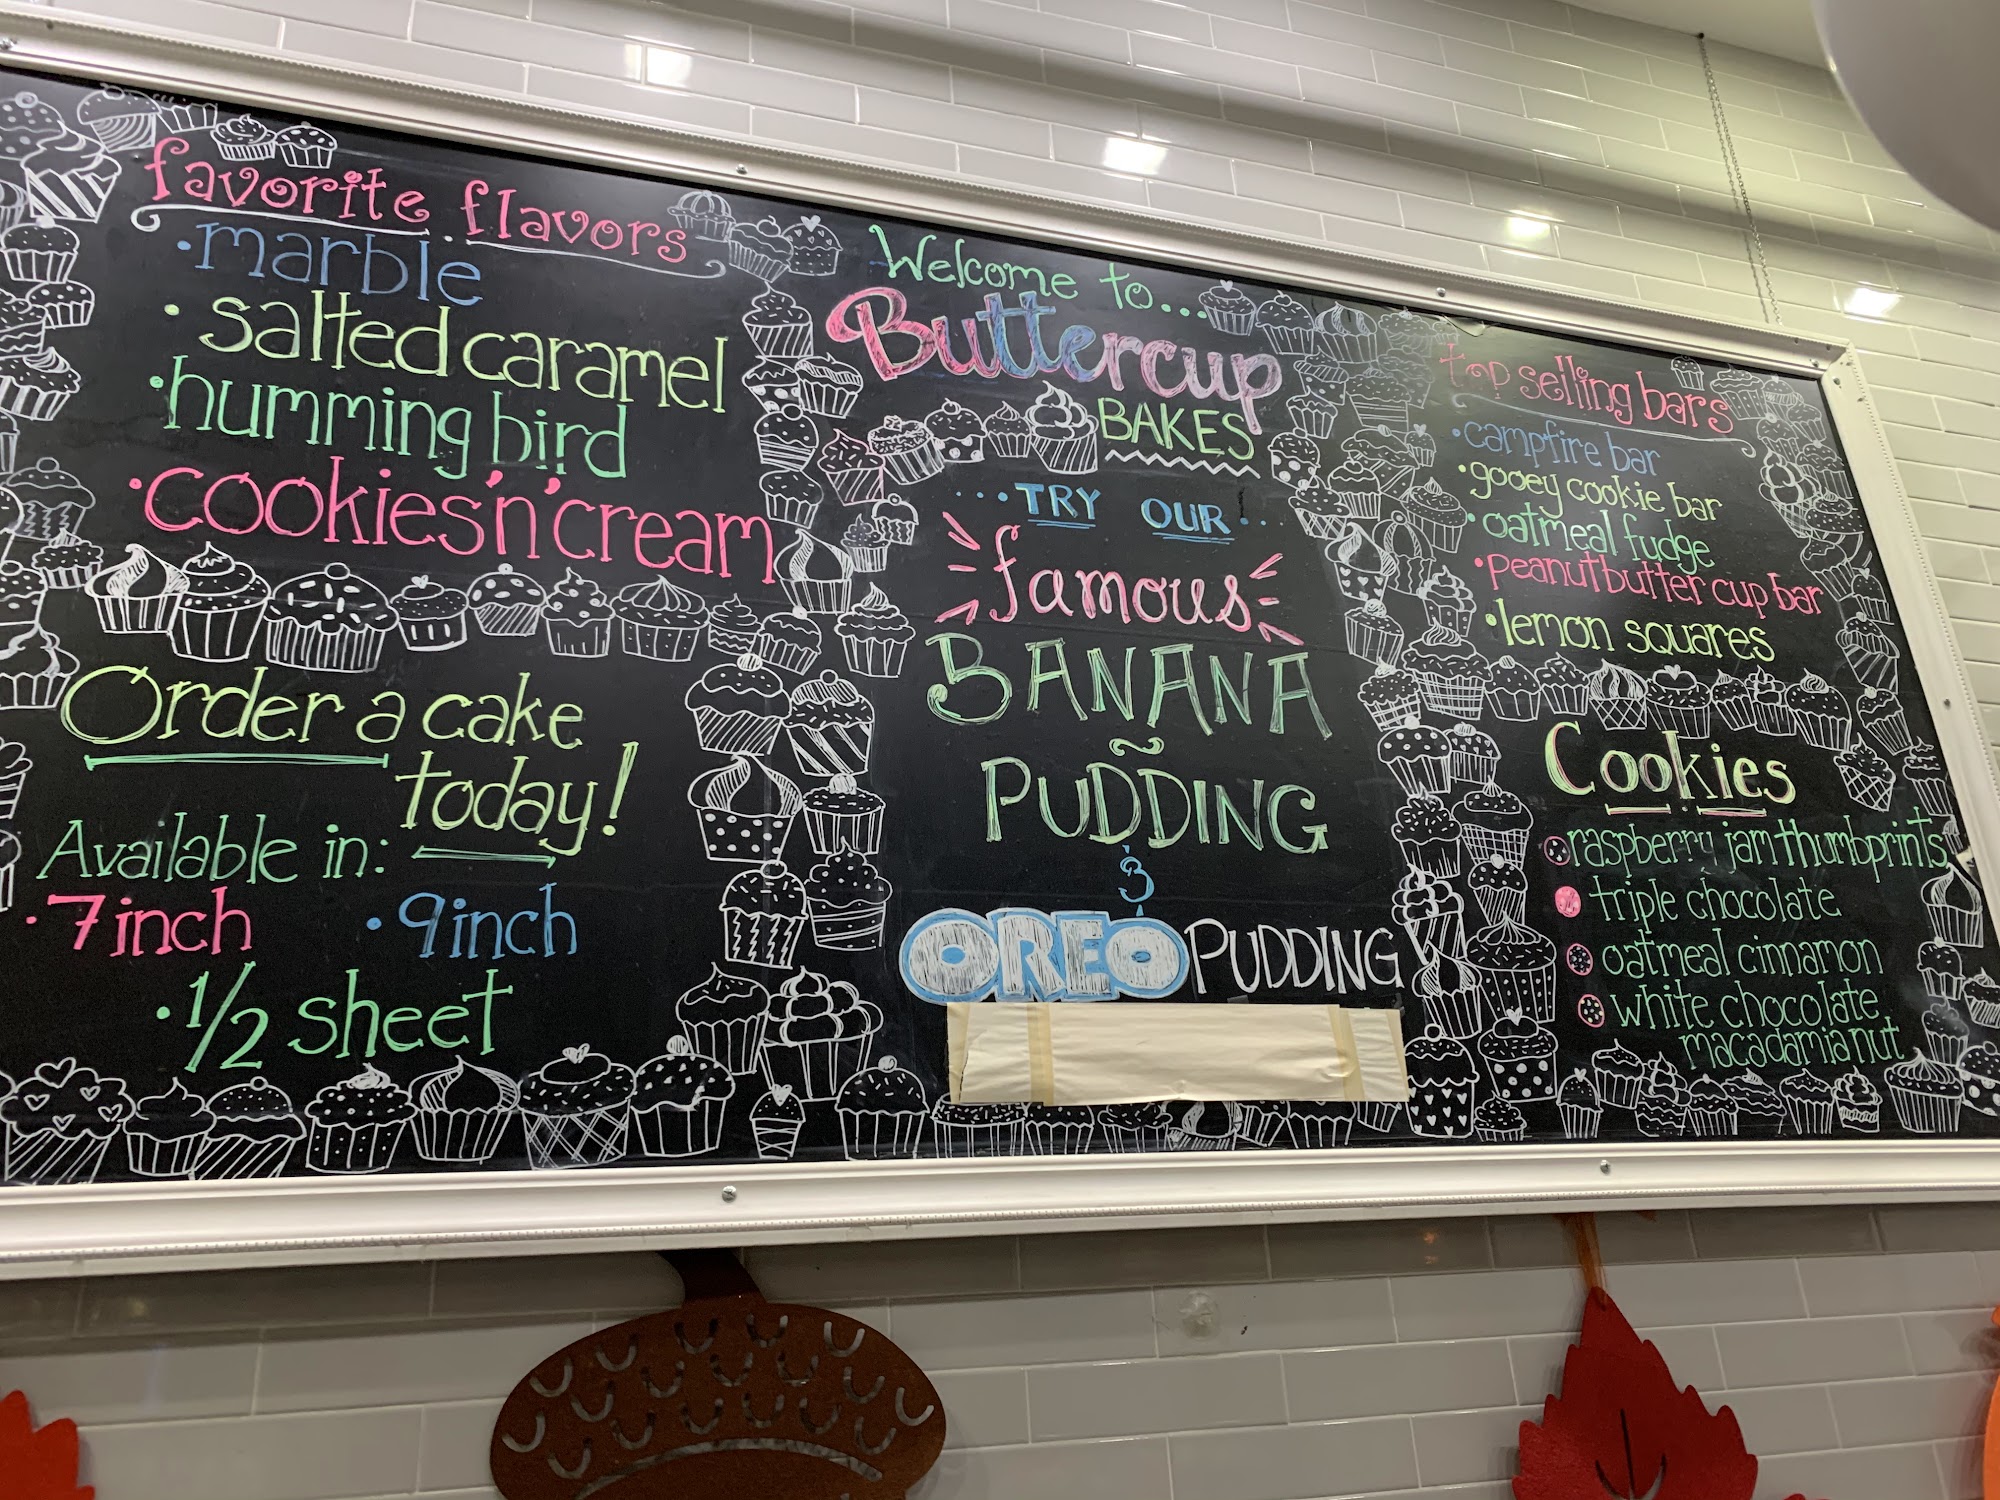 favorite flavors
• marble
• salted caramel
• humming bird
• cookies 'n' cream
Order a cake
today!
Available in:
• 7 inch • 9 inch
• 1/2 sheet
Welcome to...
Buttercup
BAKES
...TRY OUR...
famous
BANANA
~
PUDDING
&
OREO PUDDING
top selling bars
• campfire bar
• gooey cookie bar
• oatmeal fudge
• peanutbutter cup bar
• lemon squares
Cookies
raspberry jam thumbprints
triple chocolate
oatmeal cinnamon
white chocolate
macadamia nut